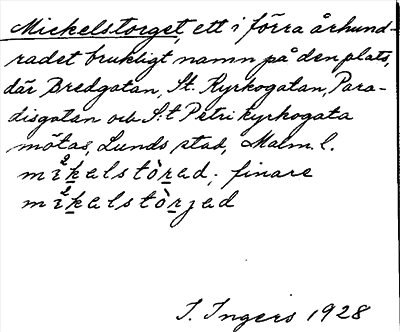 Mickelstorget, ett i förra århund-
radet brukligt namn på den plats,
där Bredgatan, St. Kyrkogatan, Para-
disgatan och S:t Petri kyrkogata
mötas, Lunds stad, Malm. l.
mi̊kalstòrad; finare
mi̊kalstòrjad
I. Ingers 1928